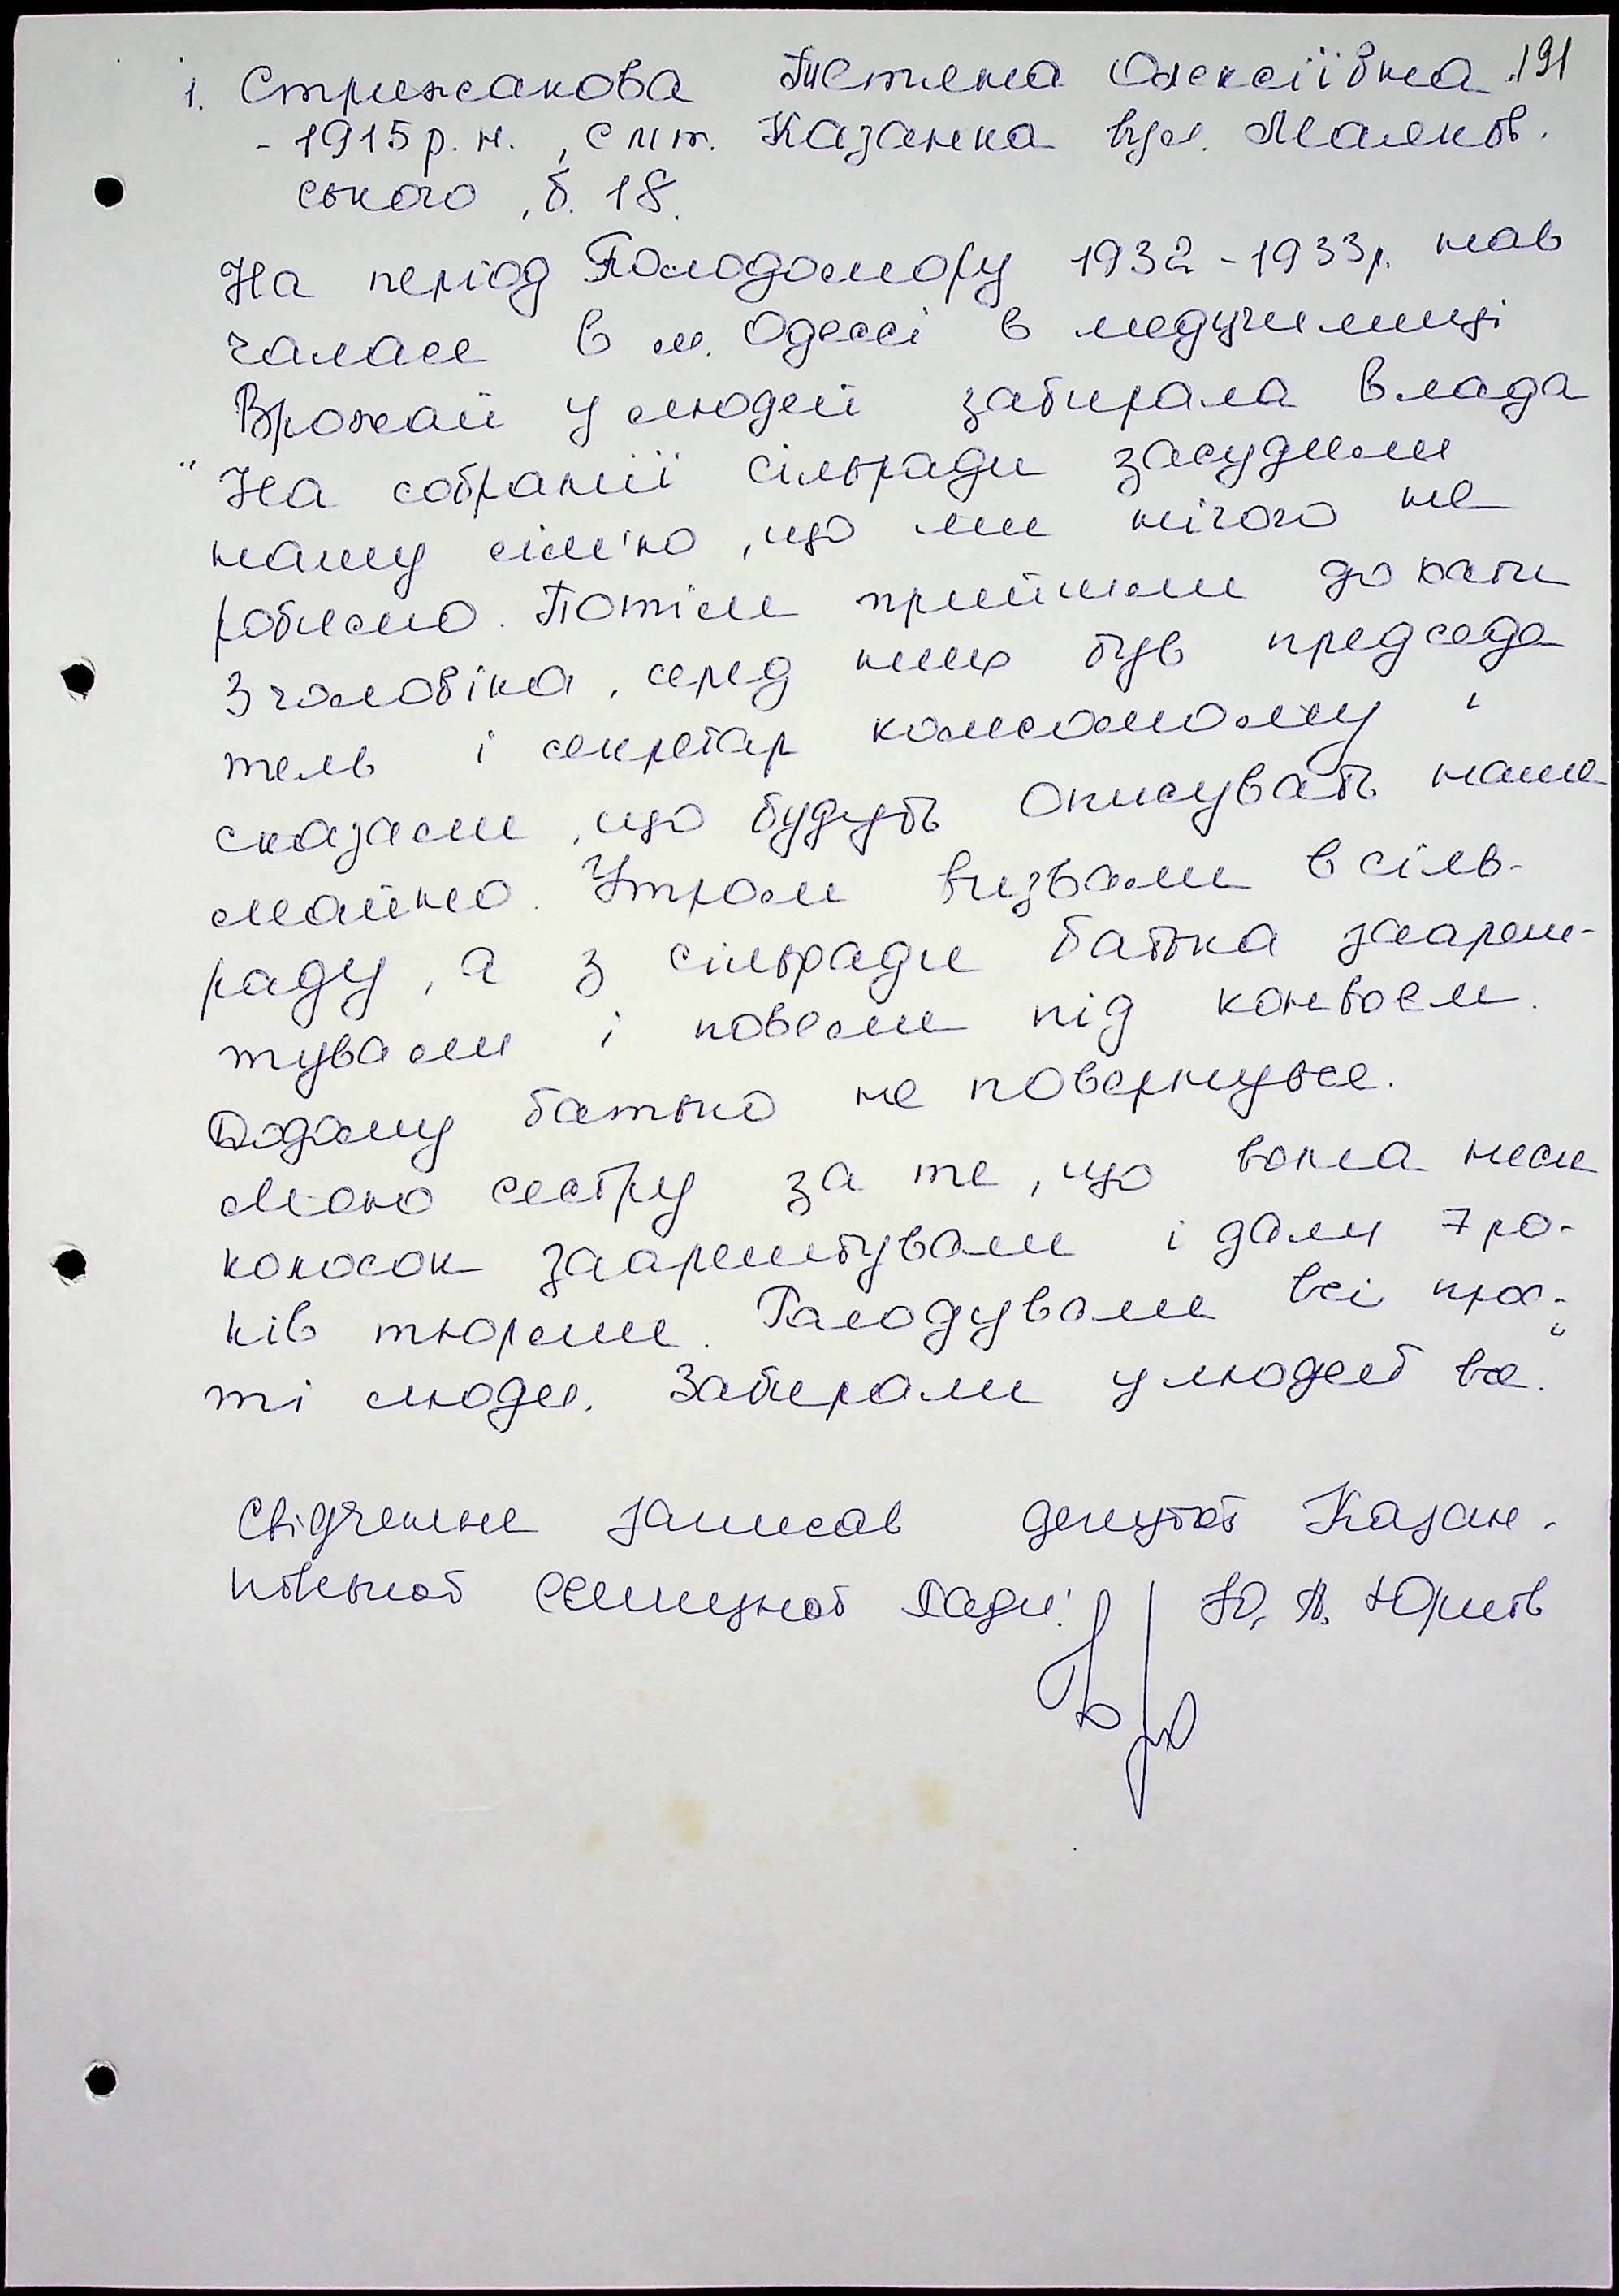 191
1. Стрижакова Тетяна Олексіївна
- 1915 р. н., смт. Казанка вул. Маяков.
ського, б. 18.
На період Голодомору 1932 - 1933 р. нав
чалася в м. Одессі в медучилищі
Врожай у людей забирала влада
" На собранії сільради засудили
нашу сім'ю, що ми нічого не
робимо. Потім прийшли до хати
3 чоловіка, серед них був председа
тель і секретар комсомолу і
сказали, що будуть описувать наше
майно. Утром визвали в сіль-
раду, а з сільради батька заареш-
тували і повели під конвоєм.
Додому батько не повернувся.
Мою сестру за те, що вона несла
колосок заарештували і дали 7 ро-
ків тюрми. Голодували всі прос-
ті люди. Забирали у людей все."
Свідчення записав депутат Казан-
ківської селищної Ради: Ю. А.